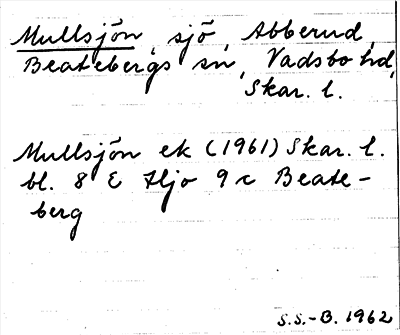 Mullsjön, sjö, Abberud,
Beatebergs sn, Vadsbo hd,
Skar. l.
Mullsjön ek (1961) Skar. l.
bl. 8 E Hjo 9 c Beate-
berg
S.S.-B. 1962